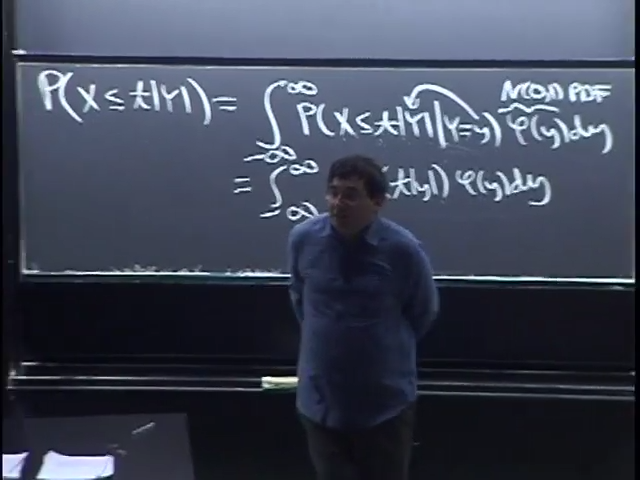 P(X ≤ t|Y|) = ∫_{-∞}^{∞} P(X ≤ t|Y| | Y=y) φ(y)dy N(0,1) PDF
= ∫_{-∞}^{∞} (t|y|) φ(y)dy